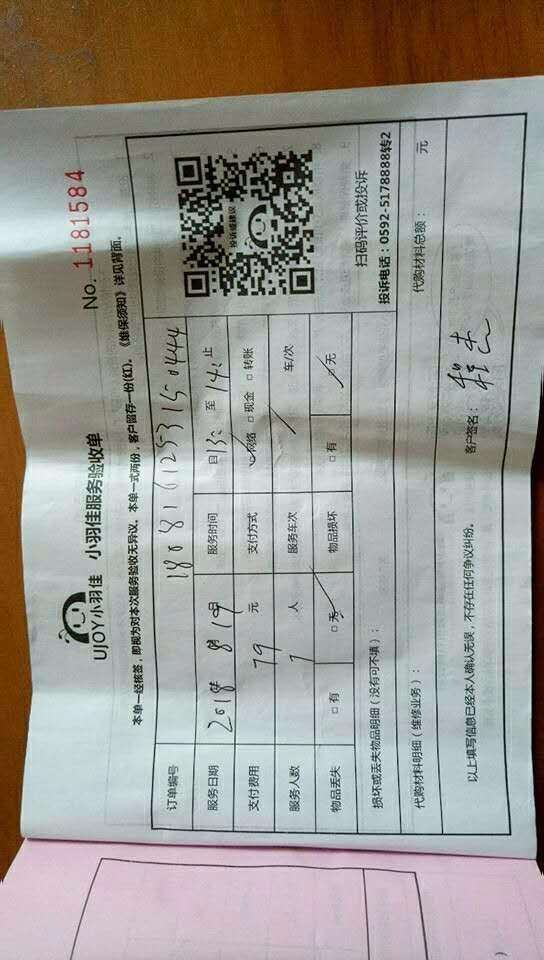 UJOY小羽佳 小羽佳服务验收单 No. 1181584
本单一经核签,即视为对本次服务验收无异议。本单一式两份,客户留存一份(红)。《维保须知》详见背面。
订单编号 180816125315 0444
服务日期 2018 8 19 服务时间 13: 至 14: 止
支付费用 79 元 支付方式 网络 □ 现金 □ 转账
服务人数 1 人 服务车次 / 车/次
物品丢失 □ 有 □ 无 物品损坏 □ 有 无
投诉或建议
扫码评价或投诉
投诉电话:0592-5178888转2
损坏或丢失物品明细(没有可不填):
代购材料明细(维修业务): 代购材料总额: 元
以上填写信息已经本人确认无误,不存在任何争议纠纷。 客户签名: